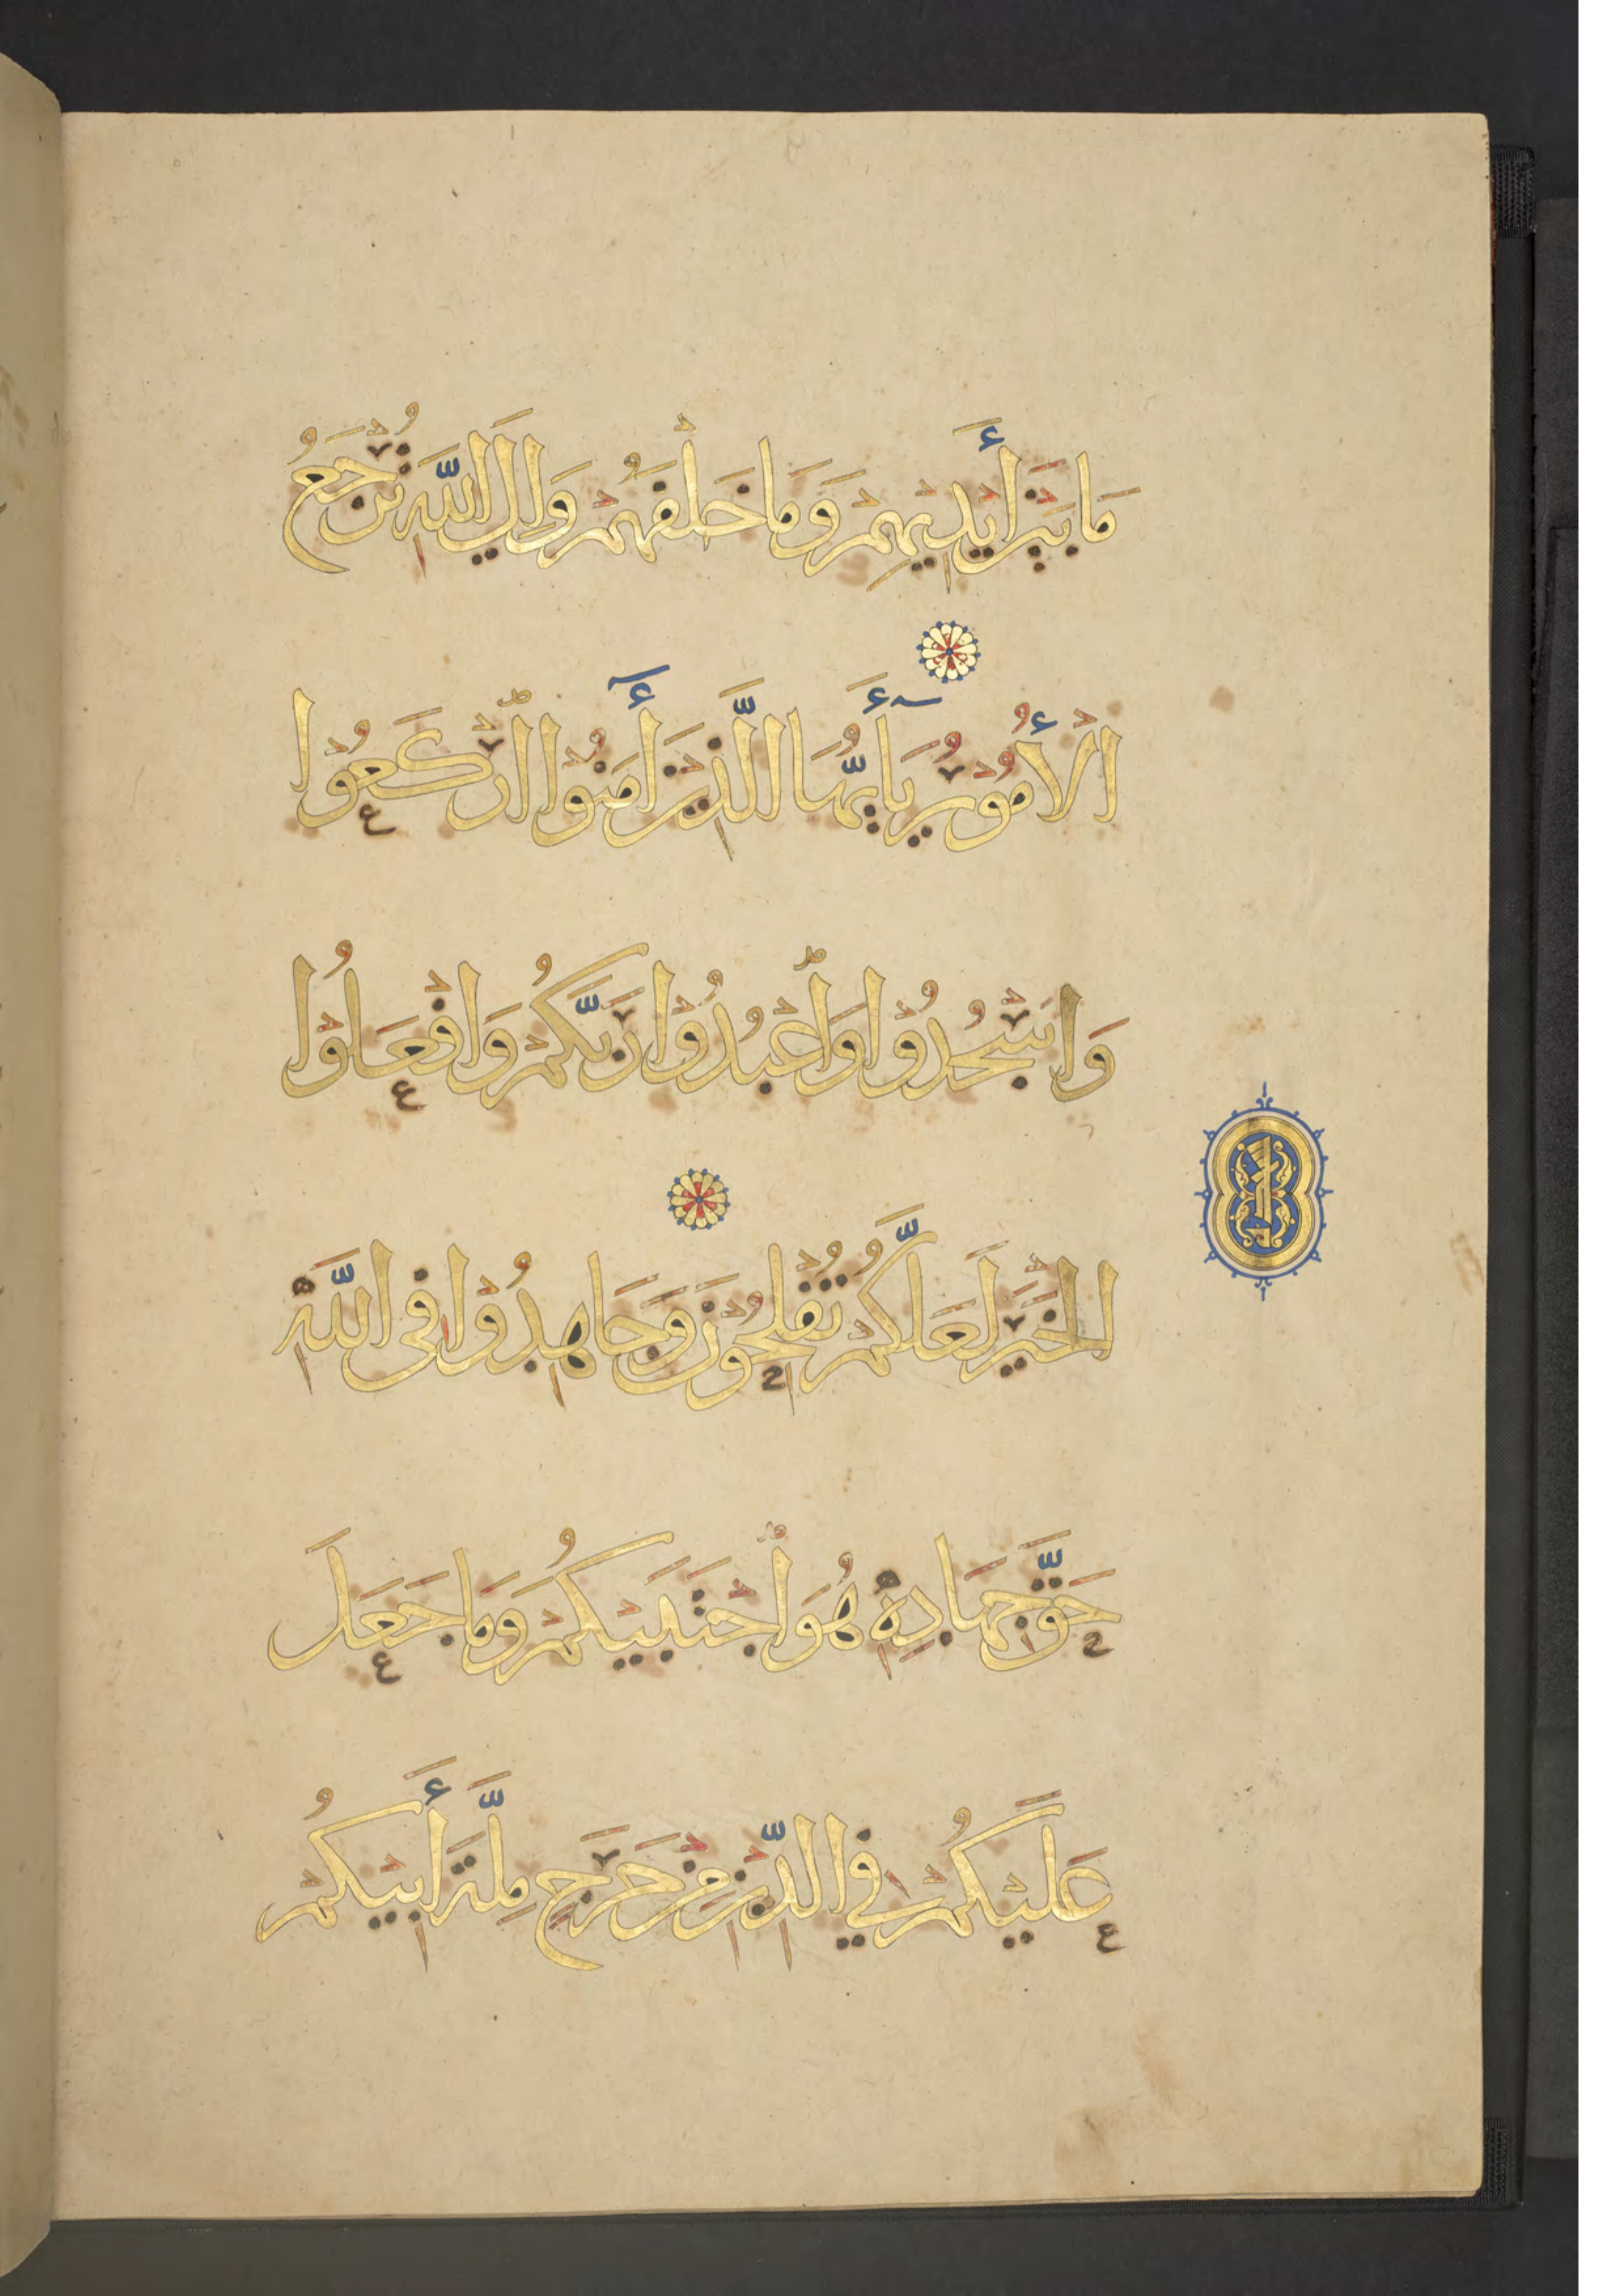 مَا بَيْنَ أَيْدِيهِمْ وَمَا خَلْفَهُمْ وَإِلَى اللَّهِ تُرْجَعُ
الْأُمُورُ يَا أَيُّهَا الَّذِينَ أَمَنُوا ارْكَعُوا
وَاسْجُدُوا وَاعْبُدُوا رَبَّكُمْ وَافْعَلُوا
الْخَيْرَ لَعَلَّكُمْ تُفْلِحُونَ وَجَاهِدُوا فِى اللَّهِ
حَقَّ جِهَادِهِ هُوَ اجْتَبَيٰكُمْ وَمَا جَعَلَ
عَلَيْكُمْ فِي الدِّينِ مِنْ حَرَجٍ مِلَّةَ أَبِيكُمْ